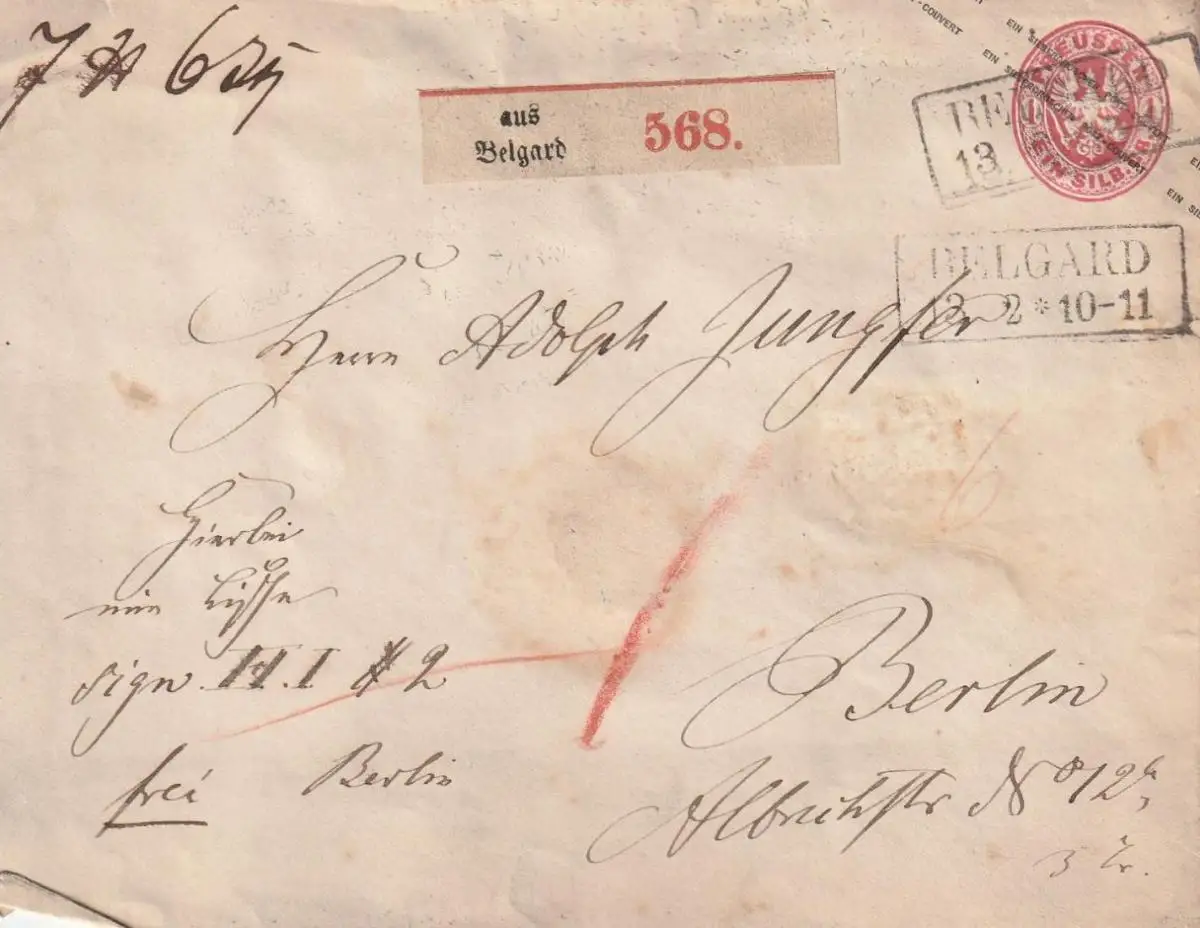 7 ℔ 6
aus
Belgard
568.
PREUSSEN
1 1
EIN SILB. GR.
13
BELGARD
13 2 * 10-11
Herrn Adolph Jungfer
Hierbei
eine Kiste
sign. # 2
frei Berlin
Berlin
Albrechtstr No 12a
3 Tr.